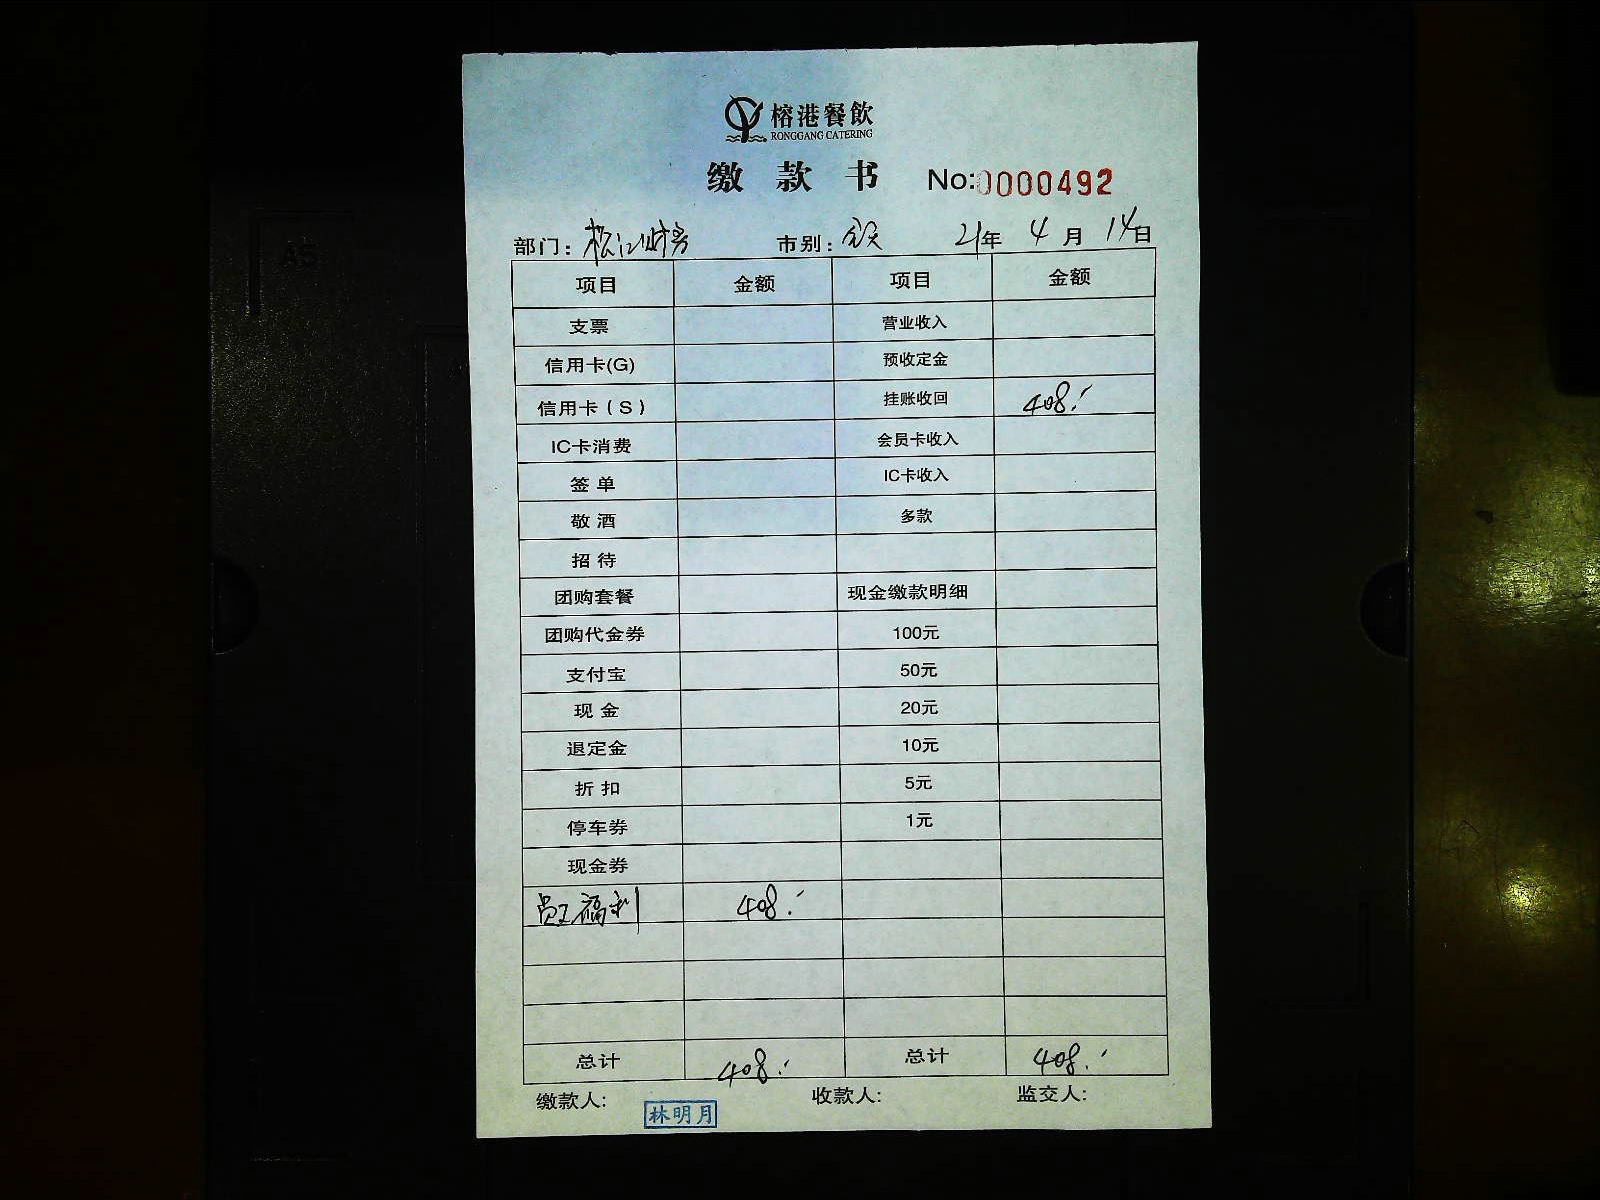 榕港餐飲
RONGGANG CATERING
缴款书 No:0000492
部门：松江财务 市别：全天 21年 4月 14日
项目 金额 项目 金额
支票 营业收入
信用卡(G) 预收定金
信用卡（S） 挂账收回 408.-
IC卡消费 会员卡收入
签单 IC卡收入
敬酒 多款
招待
团购套餐 现金缴款明细
团购代金券 100元
支付宝 50元
现金 20元
退定金 10元
折扣 5元
停车券 1元
现金券
员工福利 408.-
总计 408.- 总计 408.-
缴款人: 林明月 收款人: 监交人: